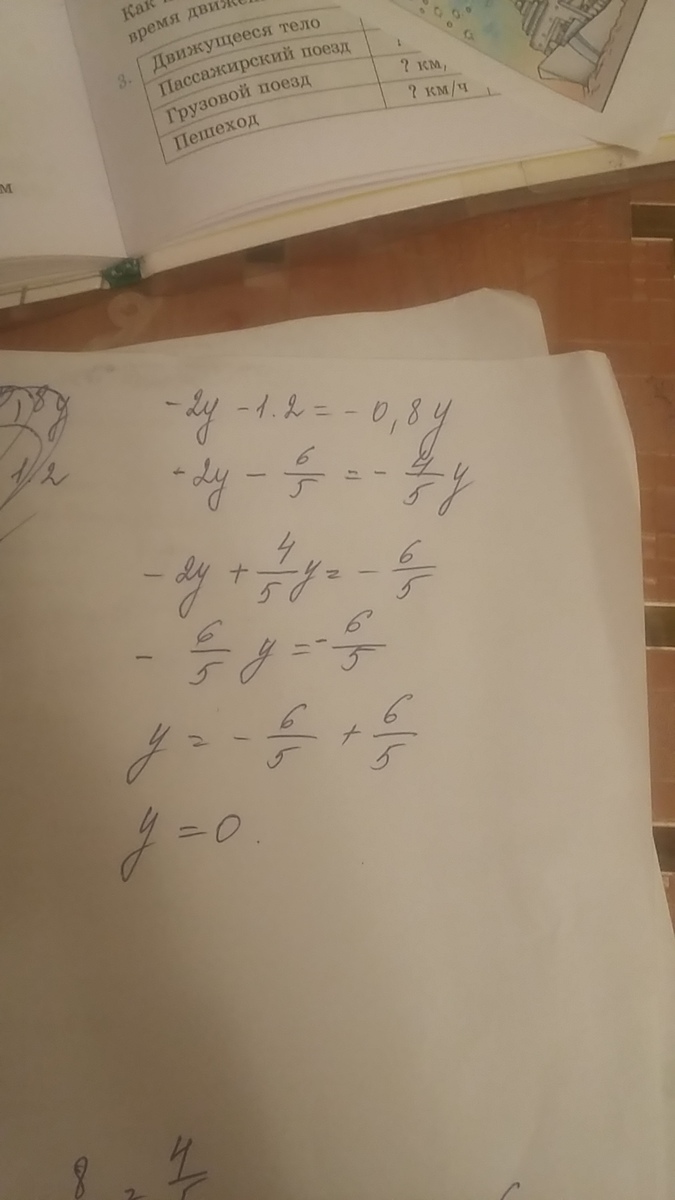 Как
время движе
3.
Движущееся тело
Пассажирский поезд
Грузовой поезд
? км,
Пешеход
? км/ч
м
,8y
1.2
-2y - 1.2 = - 0,8y
-2y - 6/5 = - 4/5 y
- 2y + 4/5 y = - 6/5
- 6/5 y = - 6/5
y = - 6/5 + 6/5
y = 0.
8 = 4/5